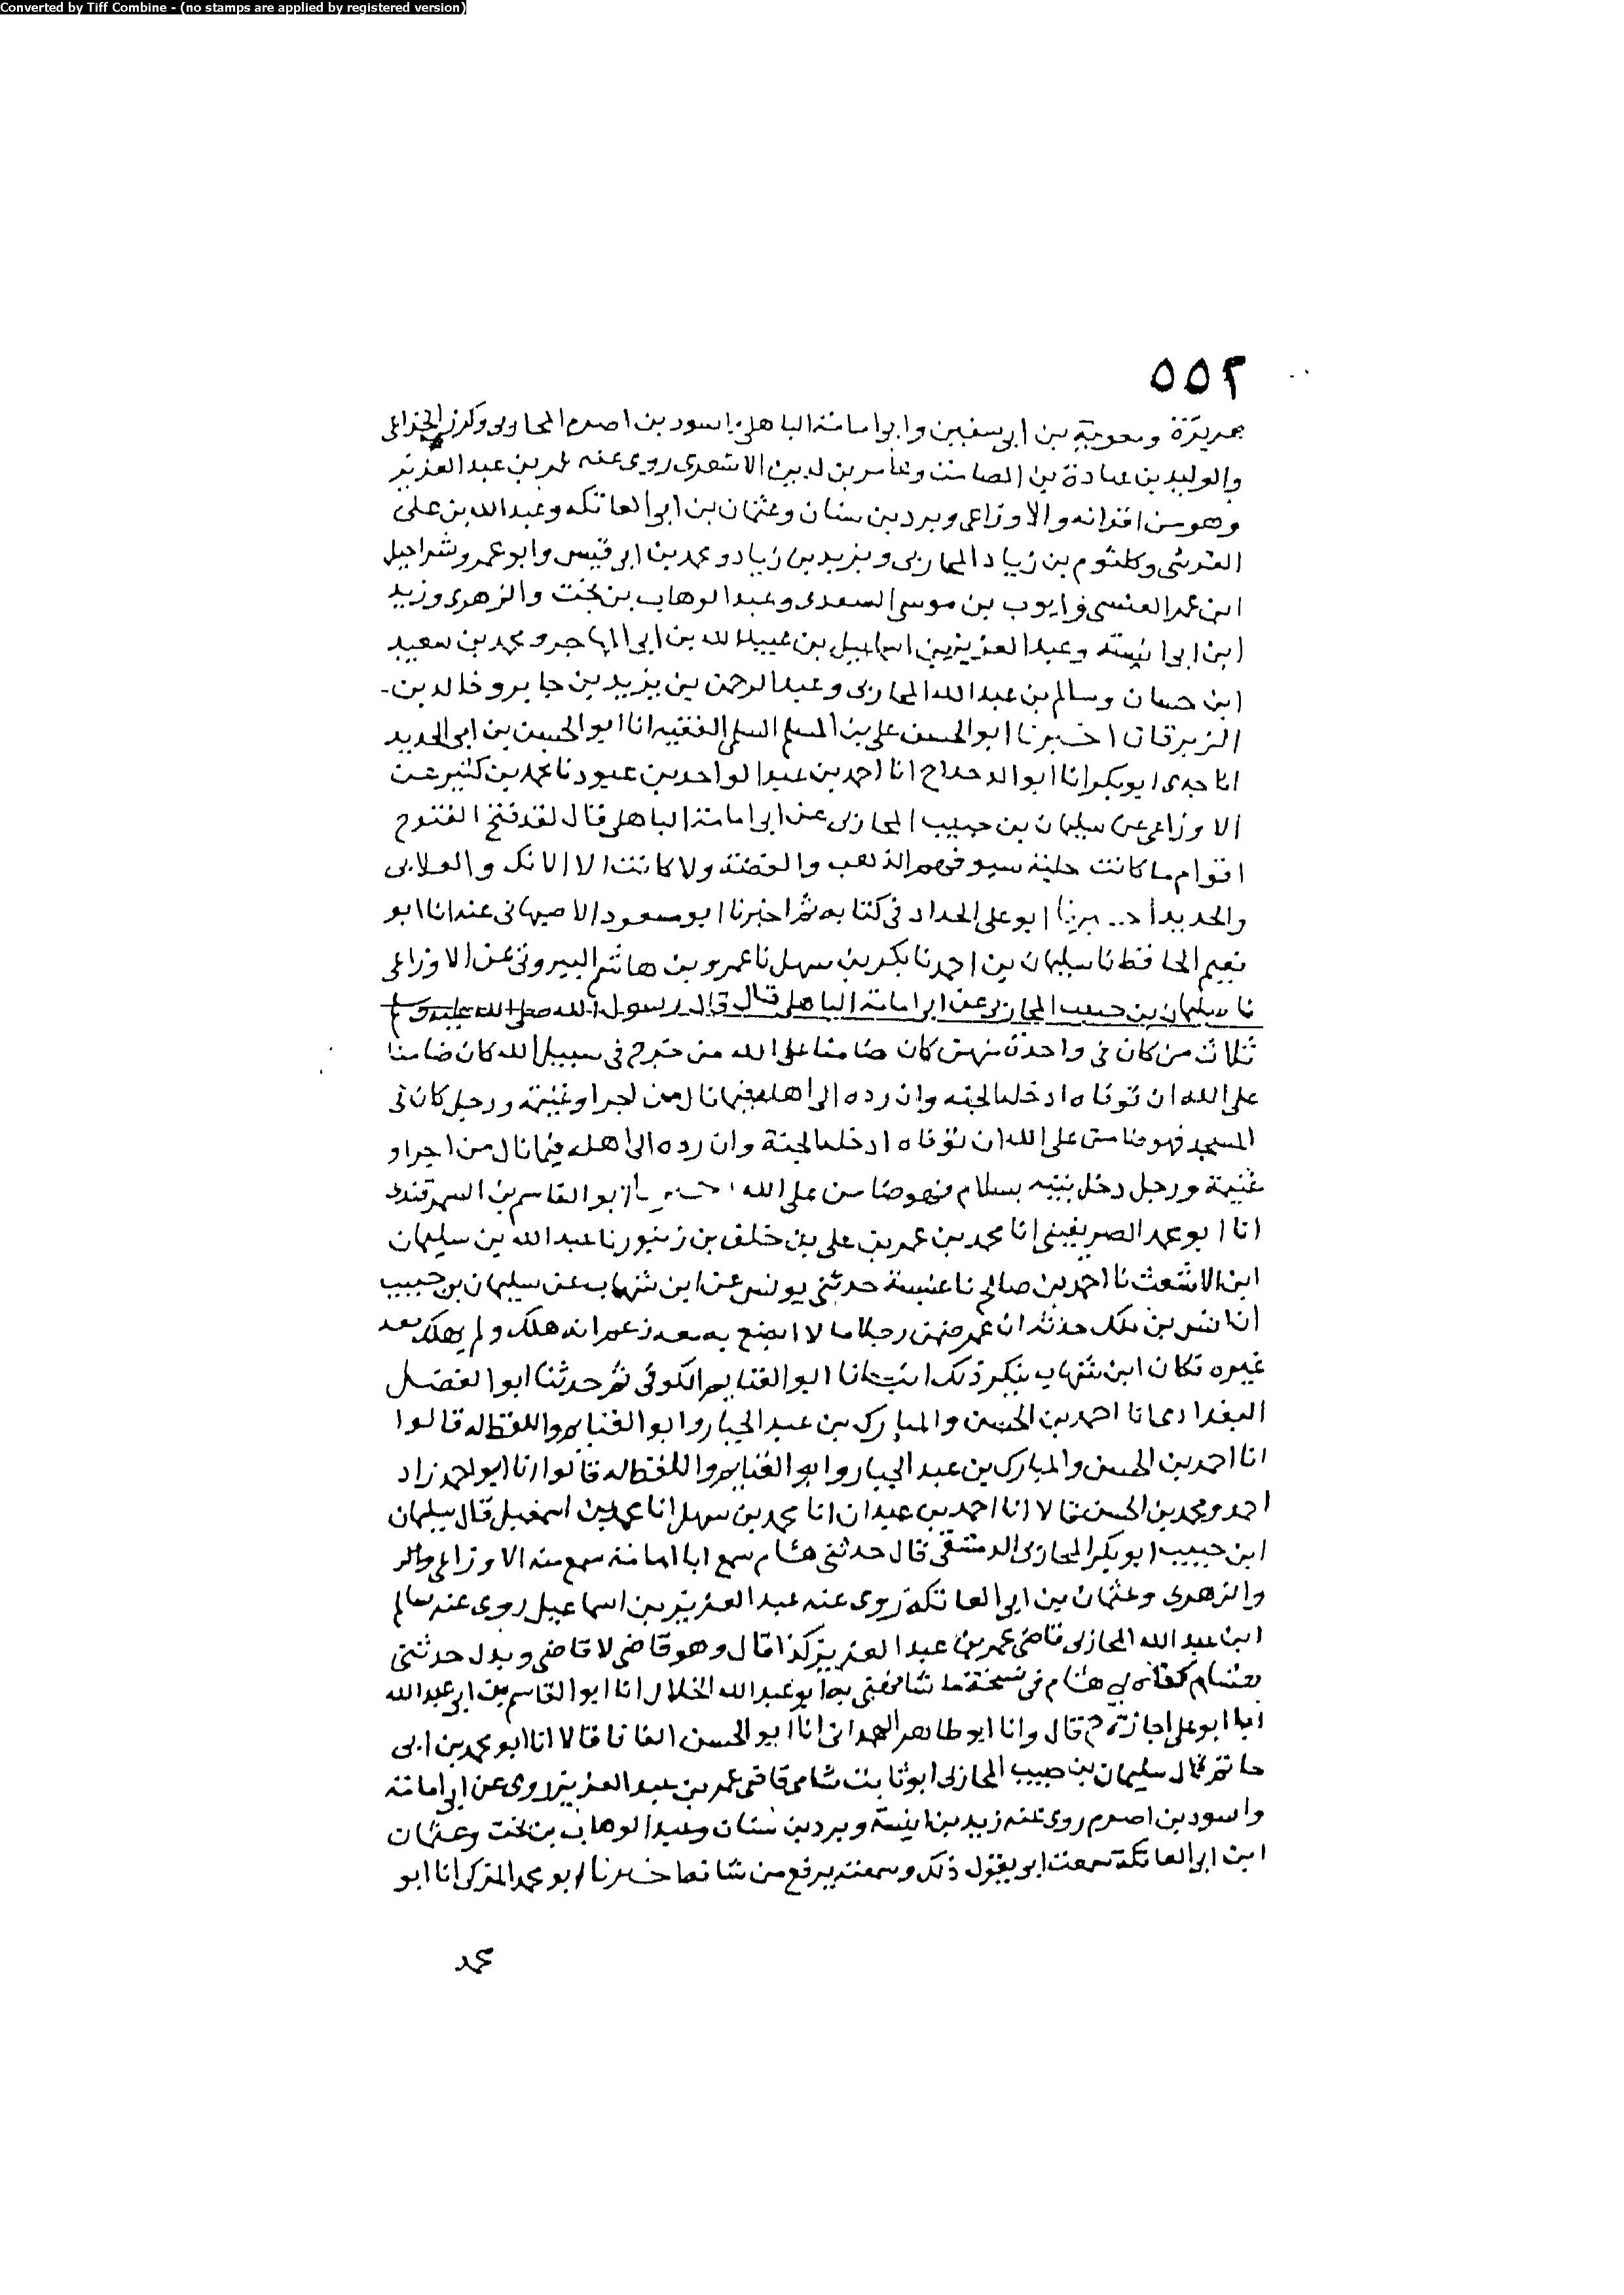 Converted by Tiff Combine - (no stamps are applied by registered version)
٥٥٢
هريرة ومعوية بن ابى سفين وابوامامة الباهلى واسود بن اصرم المحاربى وكرز الخزاعى
والوليد بن عبادة بن الصامت وعامر بن لدين الاشعرى روى عنه عمر بن عبد العزيز
وهو من اقرانه والاوزاعى وبرد بن سنان وعثمان بن ابى العاتكه وعبد الله بن على
القرشى وكلثوم بن زياد المحاربى ويزيد بن زياد ومحمد بن ابى قيس وابو عمرو شراحيل
ابن عمر العنسى وايوب بن موسى السعدى وعبد الوهاب بن بخت والزهرى وزيد
ابن ابى انيسة وعبد العزيز بن اسماعيل بن عبيد الله بن ابى المهاجر ومحمد بن سعيد
ابن حسان وسالم بن عبد الله المحاربى وعبد الرحمن بن يزيد بن جابر وخالد بن
الزبرقان اخبرنا ابو الحسن على بن المسلم السلمى الفقيه انا ابو الحسن بن ابى الحديد
انا جدى ابو بكر انا ابو الدحداح انا احمد بن عبد الواحد بن عبود نا محمد بن كثير عن
الاوزاعى عن سليمان بن حبيب المحاربى عن ابى امامة الباهلى قال لقد فتح الفتوح
اقوام ما كانت حلية سيوفهم الذهب والفضة ولا كانت الا الانك والعلابى
والحديد ابو على الحداد فى كتابه ثم اخبرنا ابو مسعود الاصبهانى عنه انا ابو
نعيم الحافظ نا سليمان بن احمد نا بكر بن سهل نا عمرو بن هاشم البيروتى عن الاوزاعى
نا سليمان بن حبيب المحاربى عن ابى امامة الباهلى قال قال رسول الله صلى الله عليه وسلم
ثلاث من كان فى واحدة منهن كان ضامنا على الله من خرج فى سبيل الله كان ضامنا
على الله ان توفاه ادخله الجنه وان رده الى اهله فبما نال من اجر او غنيمة ورجل كان فى
المسجد فهو ضامن على الله ان توفاه ادخله الجنة وان رده الى اهله فبما نال من اجر او
غنيمة ورجل دخل بيته بسلام فهو ضامن على الله ابو القاسم بن السمرقندى
انا ابو محمد الصريفينى انا محمد بن عمر بن على بن خلف بن زنبور نا عبد الله بن سليمان
ابن الاشعث نا احمد بن صالح نا عنبسة حدثنى يونس عن ابن شهاب عن سليمان بن حبيب
ان انس بن ملك حدثه ان عمر رجلا ما لا ابضع به معه زعم انه هلك ولم يهلك معه
غيره فكان ابن شهاب ينكر ذلك انا ابو الغنايم الكوفى ثم حدثنا ابو الفضل
البغدادى انا احمد بن الحسن والمبارك بن عبد الجبار وابو الغنايم واللفظ له قالوا
انا احمد بن الحسن والمبارك بن عبد الجبار وابو الغنايم واللفظ له قالوا انا ابو احمد زاد
احمد ومحمد بن الحسن قالا انا احمد بن عبدان انا محمد بن سهل انا محمد بن اسمعيل قال سليمان
ابن حبيب ابو بكر المحاربى الدمشقى قال حدثنى هشام سمع ابا امامة سمع منه الاوزاعى
والزهرى وعثمان بن ابى العاتكة روى عنه عبد العزيز بن اسماعيل روى عنه سالم
ابن عبد الله المحاربى قاضى عمر بن عبد العزيز كذا قال وهو قاضى لا قاضى وبدل حدثنى
هشام فى نسخة ما شافهنى به ابو عبد الله الخلال انا ابو القاسم بن ابى عبد الله
ابا ابو على اجازة ح قال وانا ابو طاهر الهمدانى انا ابو الحسن قالا انا ابو محمد بن ابى
حاتم قال سليمان بن حبيب المحاربى ابو ثابت شامى قاضى عمر بن عبد العزيز روى عن ابى امامة
واسود بن اصرم روى عنه زيد بن انيسة وبرد بن سنان وعبد الوهاب بن بخت وعثمان
ابن ابى العاتكة سمعت ابى يقول ذلك وسمعته يرفع من شانه اخبرنا ابو محمد المزكى انا ابو
محمد